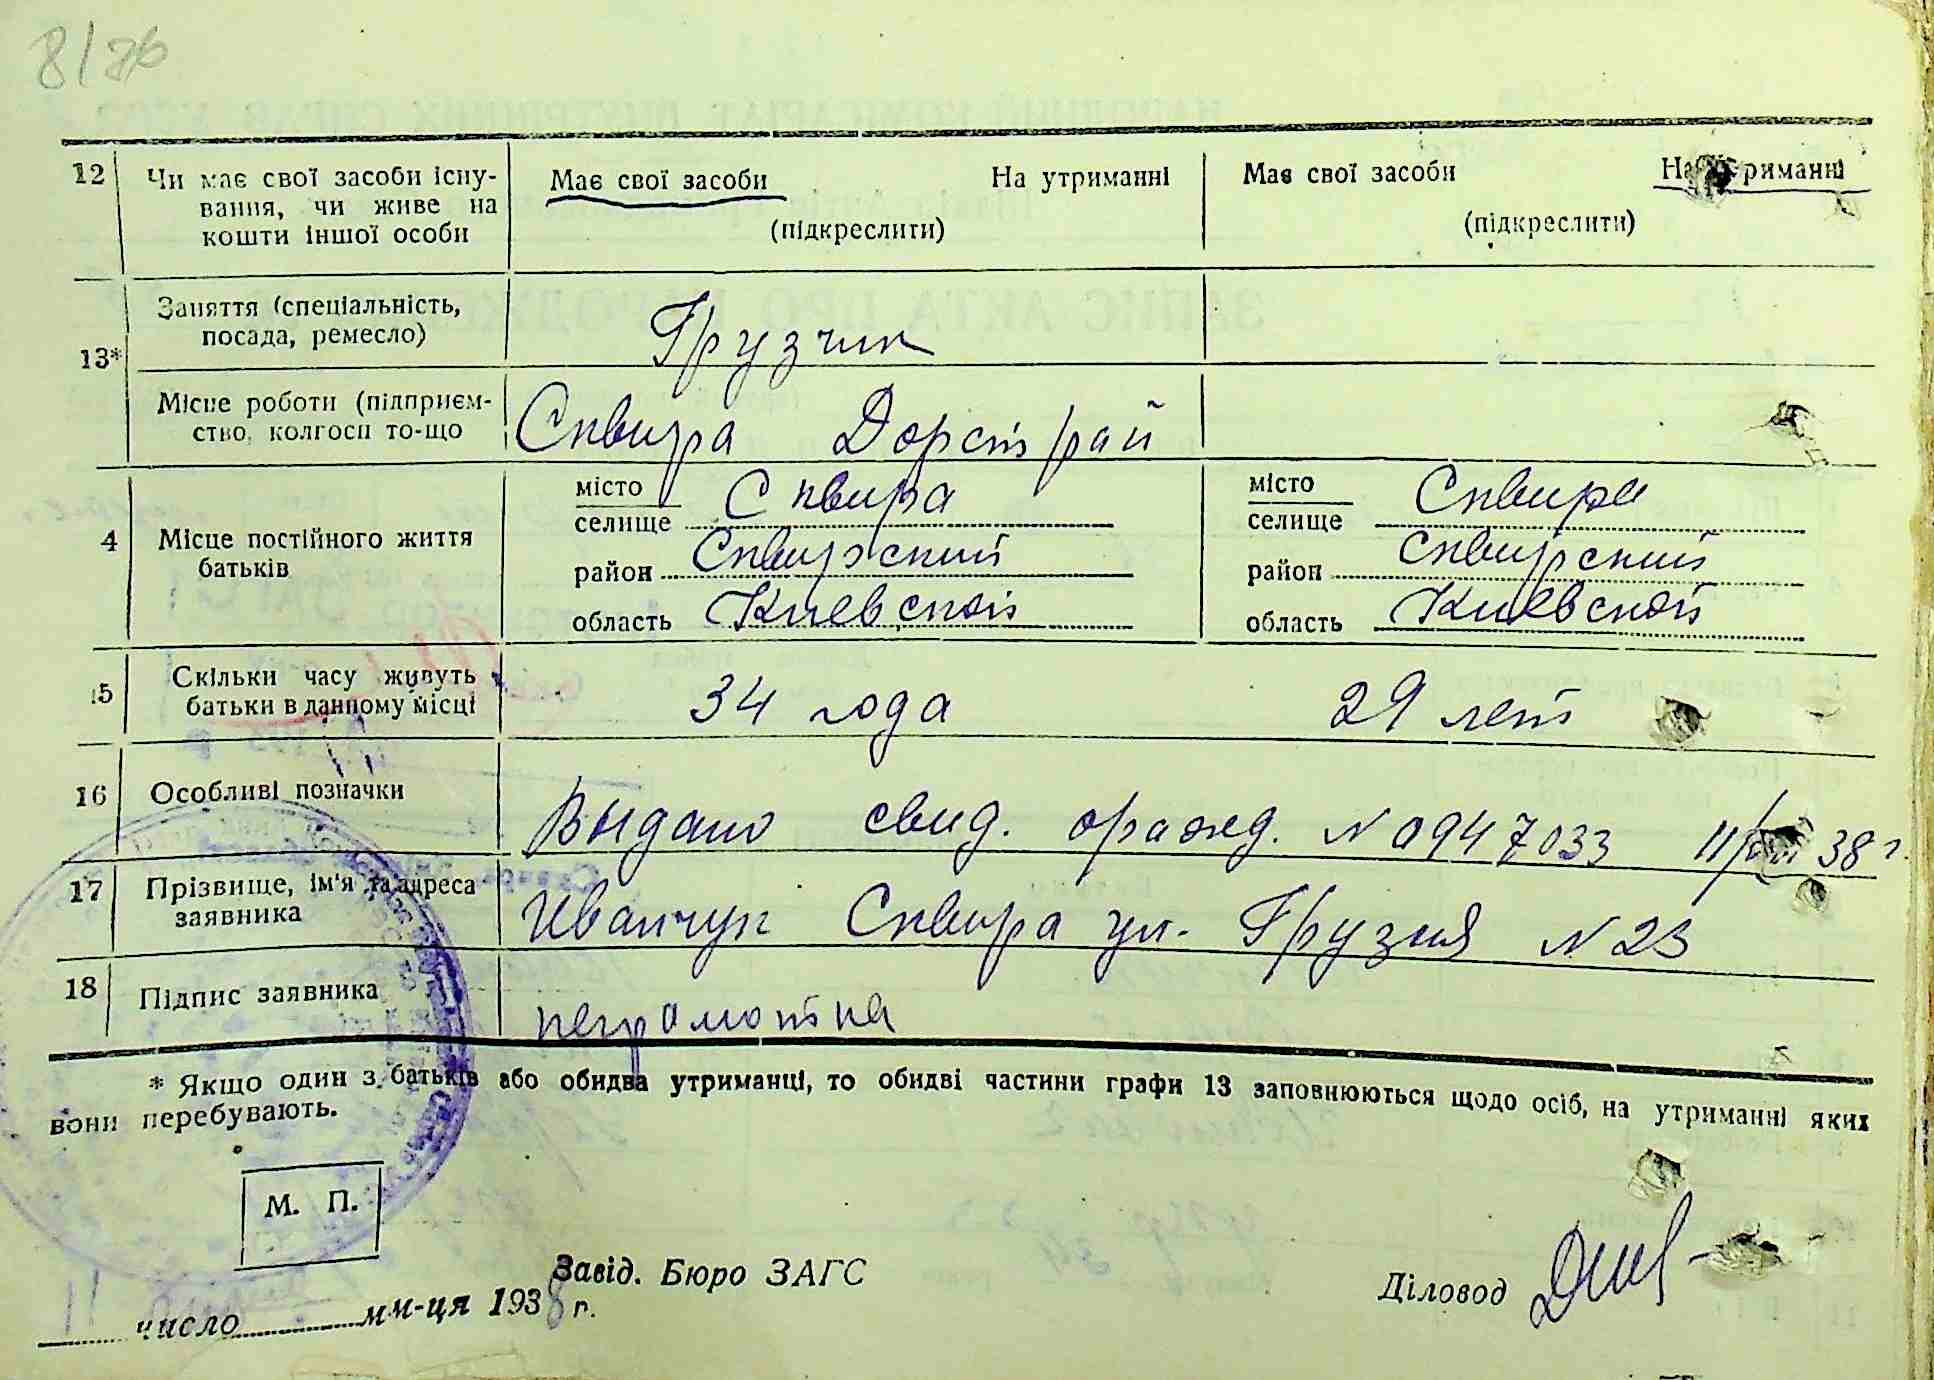 12 Чи має свої засоби існу-
вання, чи живе на
кошти іншої особи
Має свої засоби На утриманні
(підкреслити)
Має свої засоби На утриманні
(підкреслити)
13*
Заняття (спеціальність,
посада, ремесло)
Грузчик
Місце роботи (підприєм-
ство, колгосп то-що
Сквира Дорстрой
4 Місце постійного життя
батьків
місто
селище Сквира
район Сквирский
область Киевской
місто
селище Сквира
район Сквирский
область Киевской
15 Скільки часу живуть
батьки в данному місці
34 года
29 лет
16 Особливі позначки
Выдано свид. о рожд. N 0947033 11/ 38 г.
17 Прізвище, ім'я та адреса
заявника
Иванчук Сквира ул. Грузия N 23
18 Підпис заявника
неграмотна
* Якщо один з батьків або обидва утриманці, то обидві частини графи 13 заповнюються щодо осіб, на утриманні яких
вони перебувають.
М. П.
Завід. Бюро ЗАГС
Діловод
11 число м-ця 1938 г.